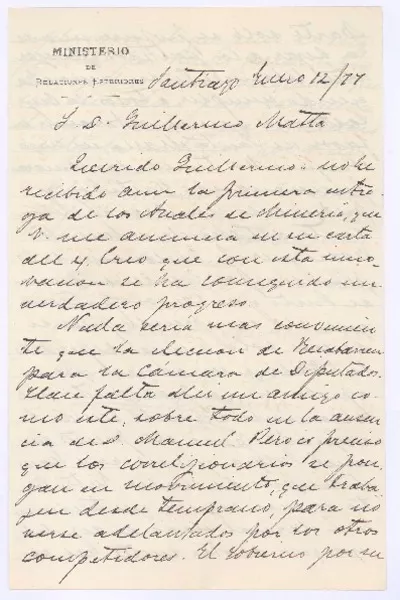 MINISTERIO
DE
RELACIONES EXTERIORES
Santiago Enero 12/77
S. D. Guillermo Matta
Querido Guillermo: no he
recibido aun la primera entre-
ga de los Anales de Mineria, que
V. me anuncia en su carta
del 4. Creo que con esta inno-
vacion se ha conseguido un
verdadero progreso.
Nada seria mas convenien-
te que la eleccion de
para la Cámara de Diputados.
Hace falta alli un amigo co-
mo este, sobre todo en la ausen-
cia de D. Manuel. Pero es preciso
que los correlijionarios se pon-
gan en movimiento, que traba-
jen desde temprano, para no
verse adelantados por los otros
competidores. El Gobierno por su